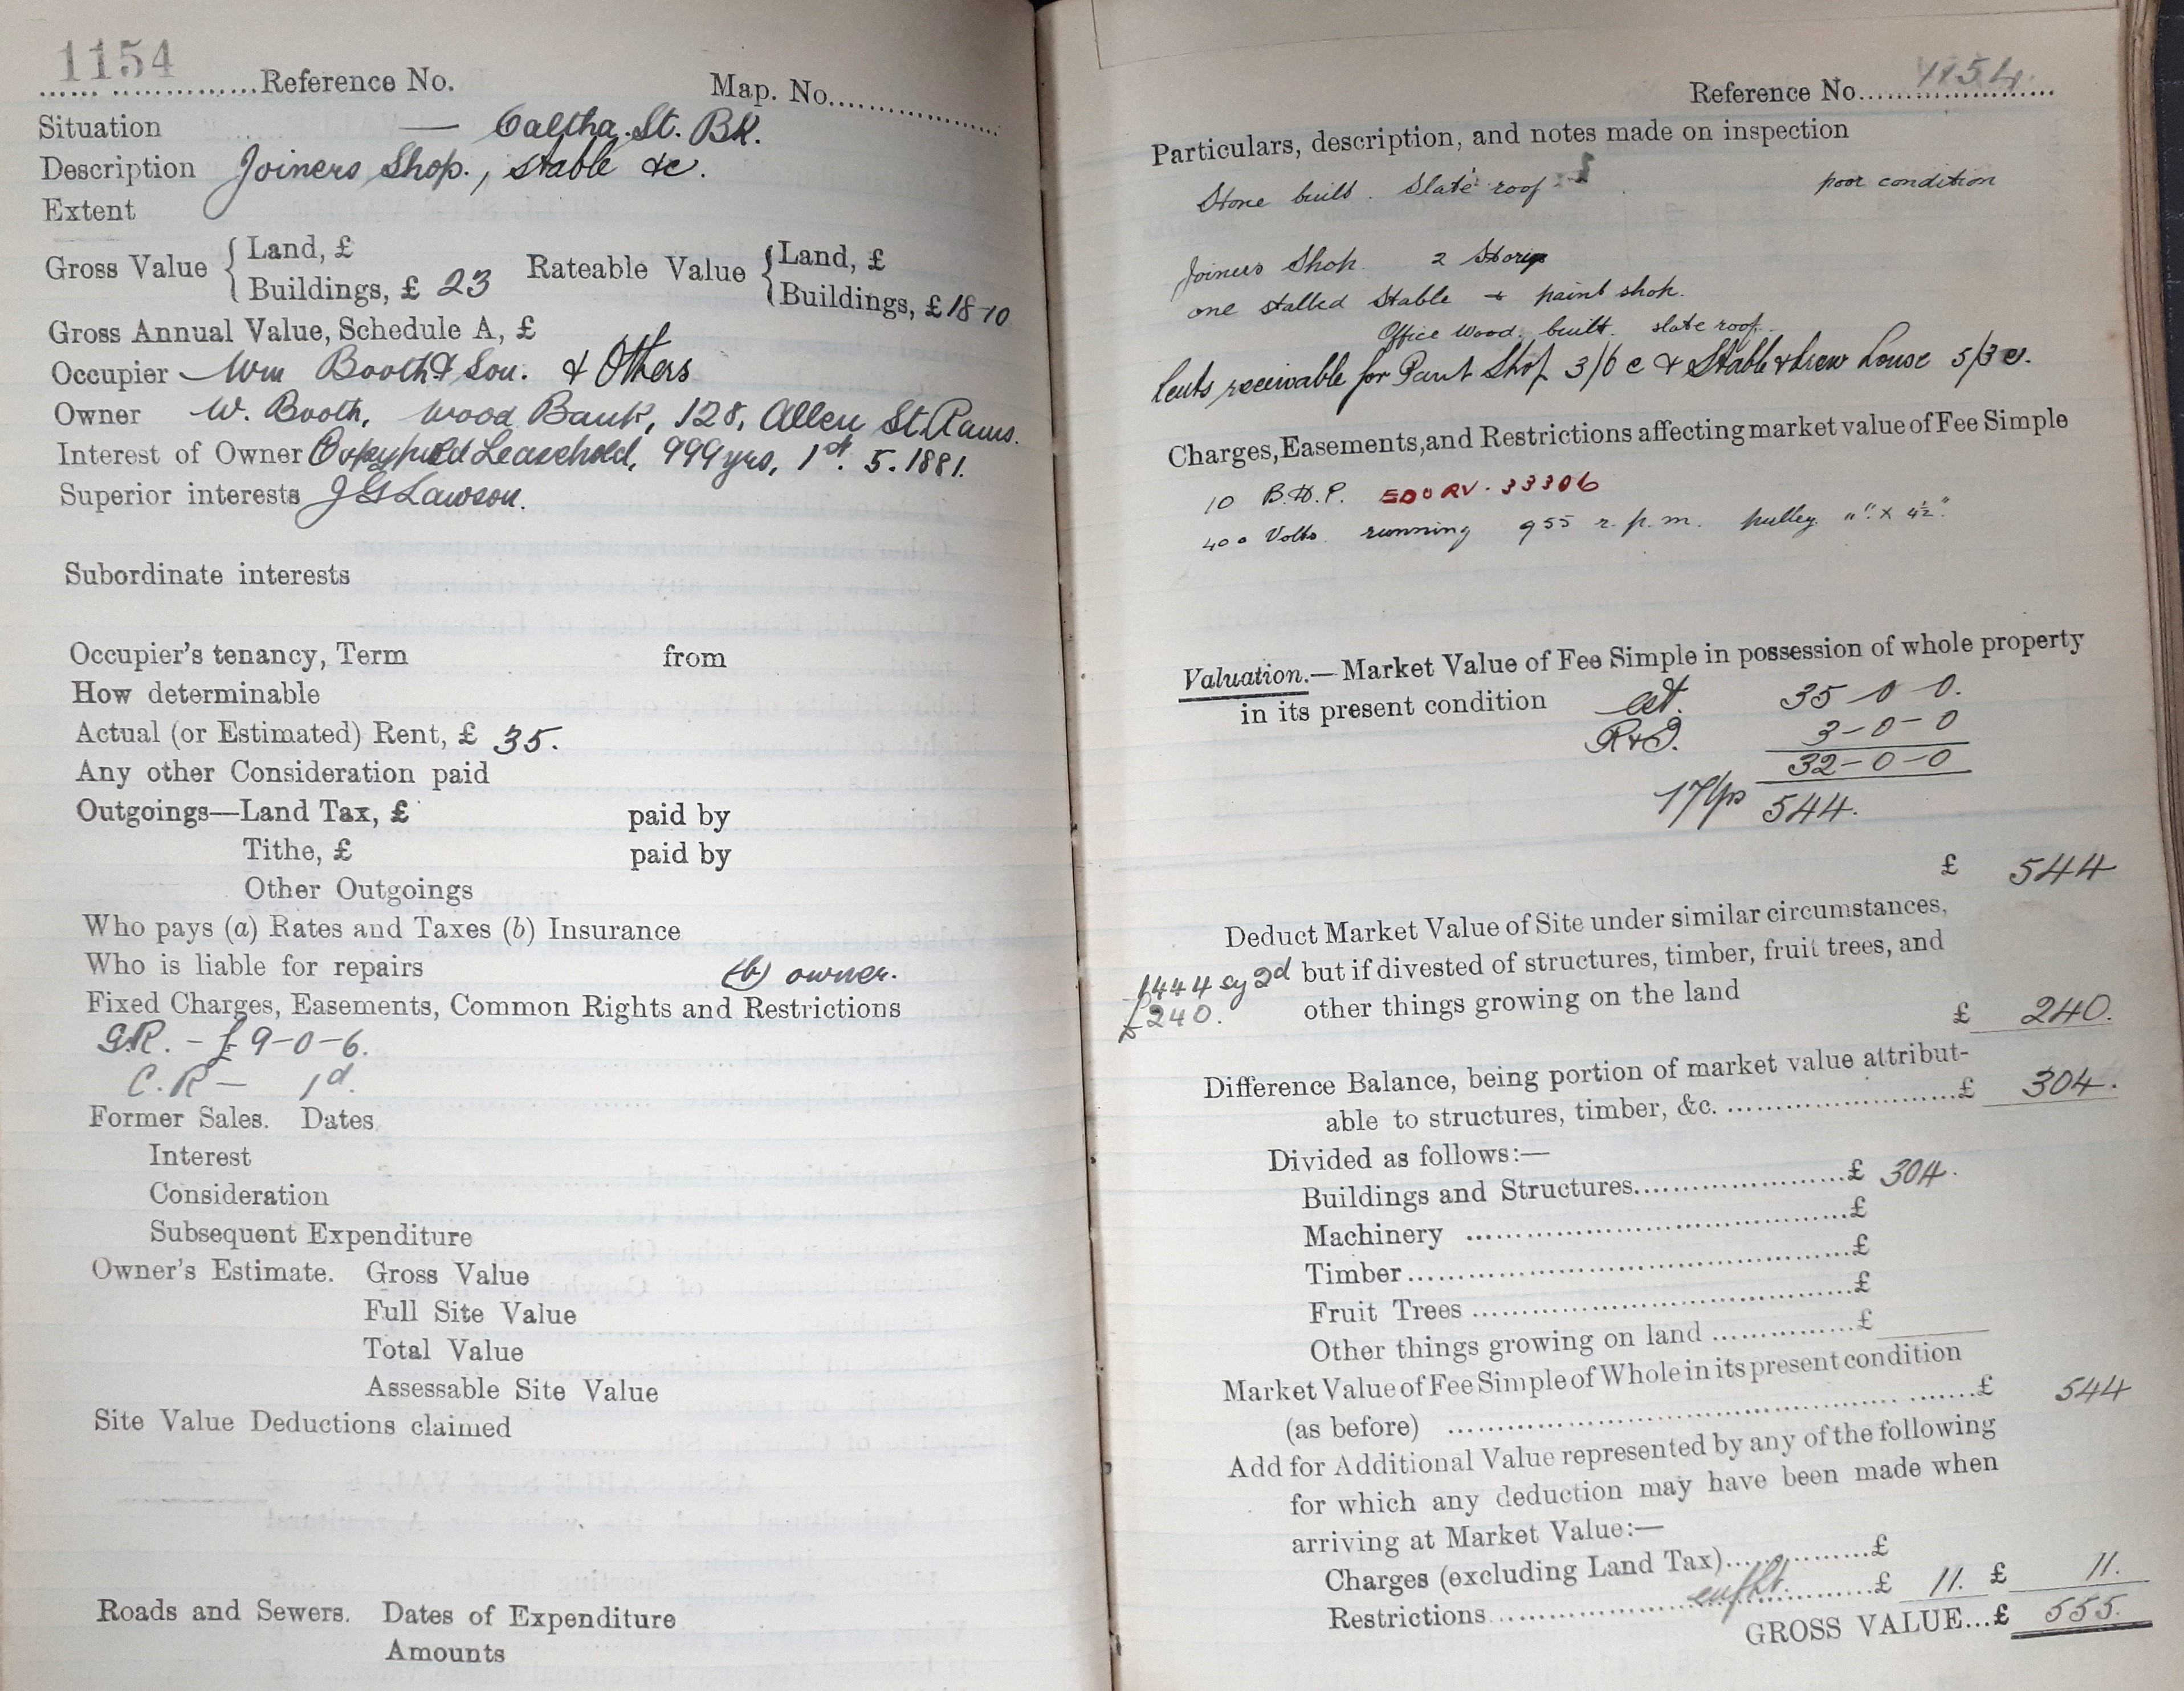 1154
Reference No. Map. No.
Situation — Caltha. St. BK.
Description Joiners Shop., stable &c.
Extent
Gross Value { Land, £ Rateable Value { Land, £
Buildings, £ 23 Buildings, £ 18-10
Gross Annual Value, Schedule A, £
Occupier Wm Booth & Son. & Others
Owner W. Booth, Wood Bank, 128, Allen St. Rams.
Interest of Owner Leasehold, 999 yrs, 1st. 5. 1881.
Superior interests J G Lawson.
Subordinate interests
Occupier's tenancy, Term from
How determinable
Actual (or Estimated) Rent, £ 35.
Any other Consideration paid
Outgoings—Land Tax, £ paid by
Tithe, £ paid by
Other Outgoings
Who pays (a) Rates and Taxes (b) Insurance
Who is liable for repairs (b) owner.
Fixed Charges, Easements, Common Rights and Restrictions
G.R. - £9-0-6.
C.R — 1d.
Former Sales. Dates
Interest
Consideration
Subsequent Expenditure
Owner's Estimate. Gross Value
Full Site Value
Total Value
Assessable Site Value
Site Value Deductions claimed
Roads and Sewers. Dates of Expenditure
Amounts
Reference No. 1154
Particulars, description, and notes made on inspection
Stone built. Slate roof poor condition
Joiners Shop 2 Stories
one stalled Stable + paint shop.
Office Wood. built. slate roof.
Rents receivable for Paint Shop 3/6 & Stable & house 5/3
Charges, Easements, and Restrictions affecting market value of Fee Simple
10 B.H.P. 500 RV. 33306
400 Volts running 955 r.p.m. pulley 11" X 4½"
Valuation.—Market Value of Fee Simple in possession of whole property
in its present condition est. 35-0-0.
R&I. 3-0-0
32-0-0
17 Yp 544.
£ 544
Deduct Market Value of Site under similar circumstances,
1444 sy 2d but if divested of structures, timber, fruit trees, and
£240. other things growing on the land
£ 240.
Difference Balance, being portion of market value attribut-
able to structures, timber, &c. £ 304.
Divided as follows:—
Buildings and Structures £ 304.
Machinery £
Timber £
Fruit Trees £
Other things growing on land £
Market Value of Fee Simple of Whole in its present condition
(as before) £ 544
Add for Additional Value represented by any of the following
for which any deduction may have been made when
arriving at Market Value:—
Charges (excluding Land Tax) £
Restrictions enfht. £ 11. £ 11.
GROSS VALUE...£ 555.